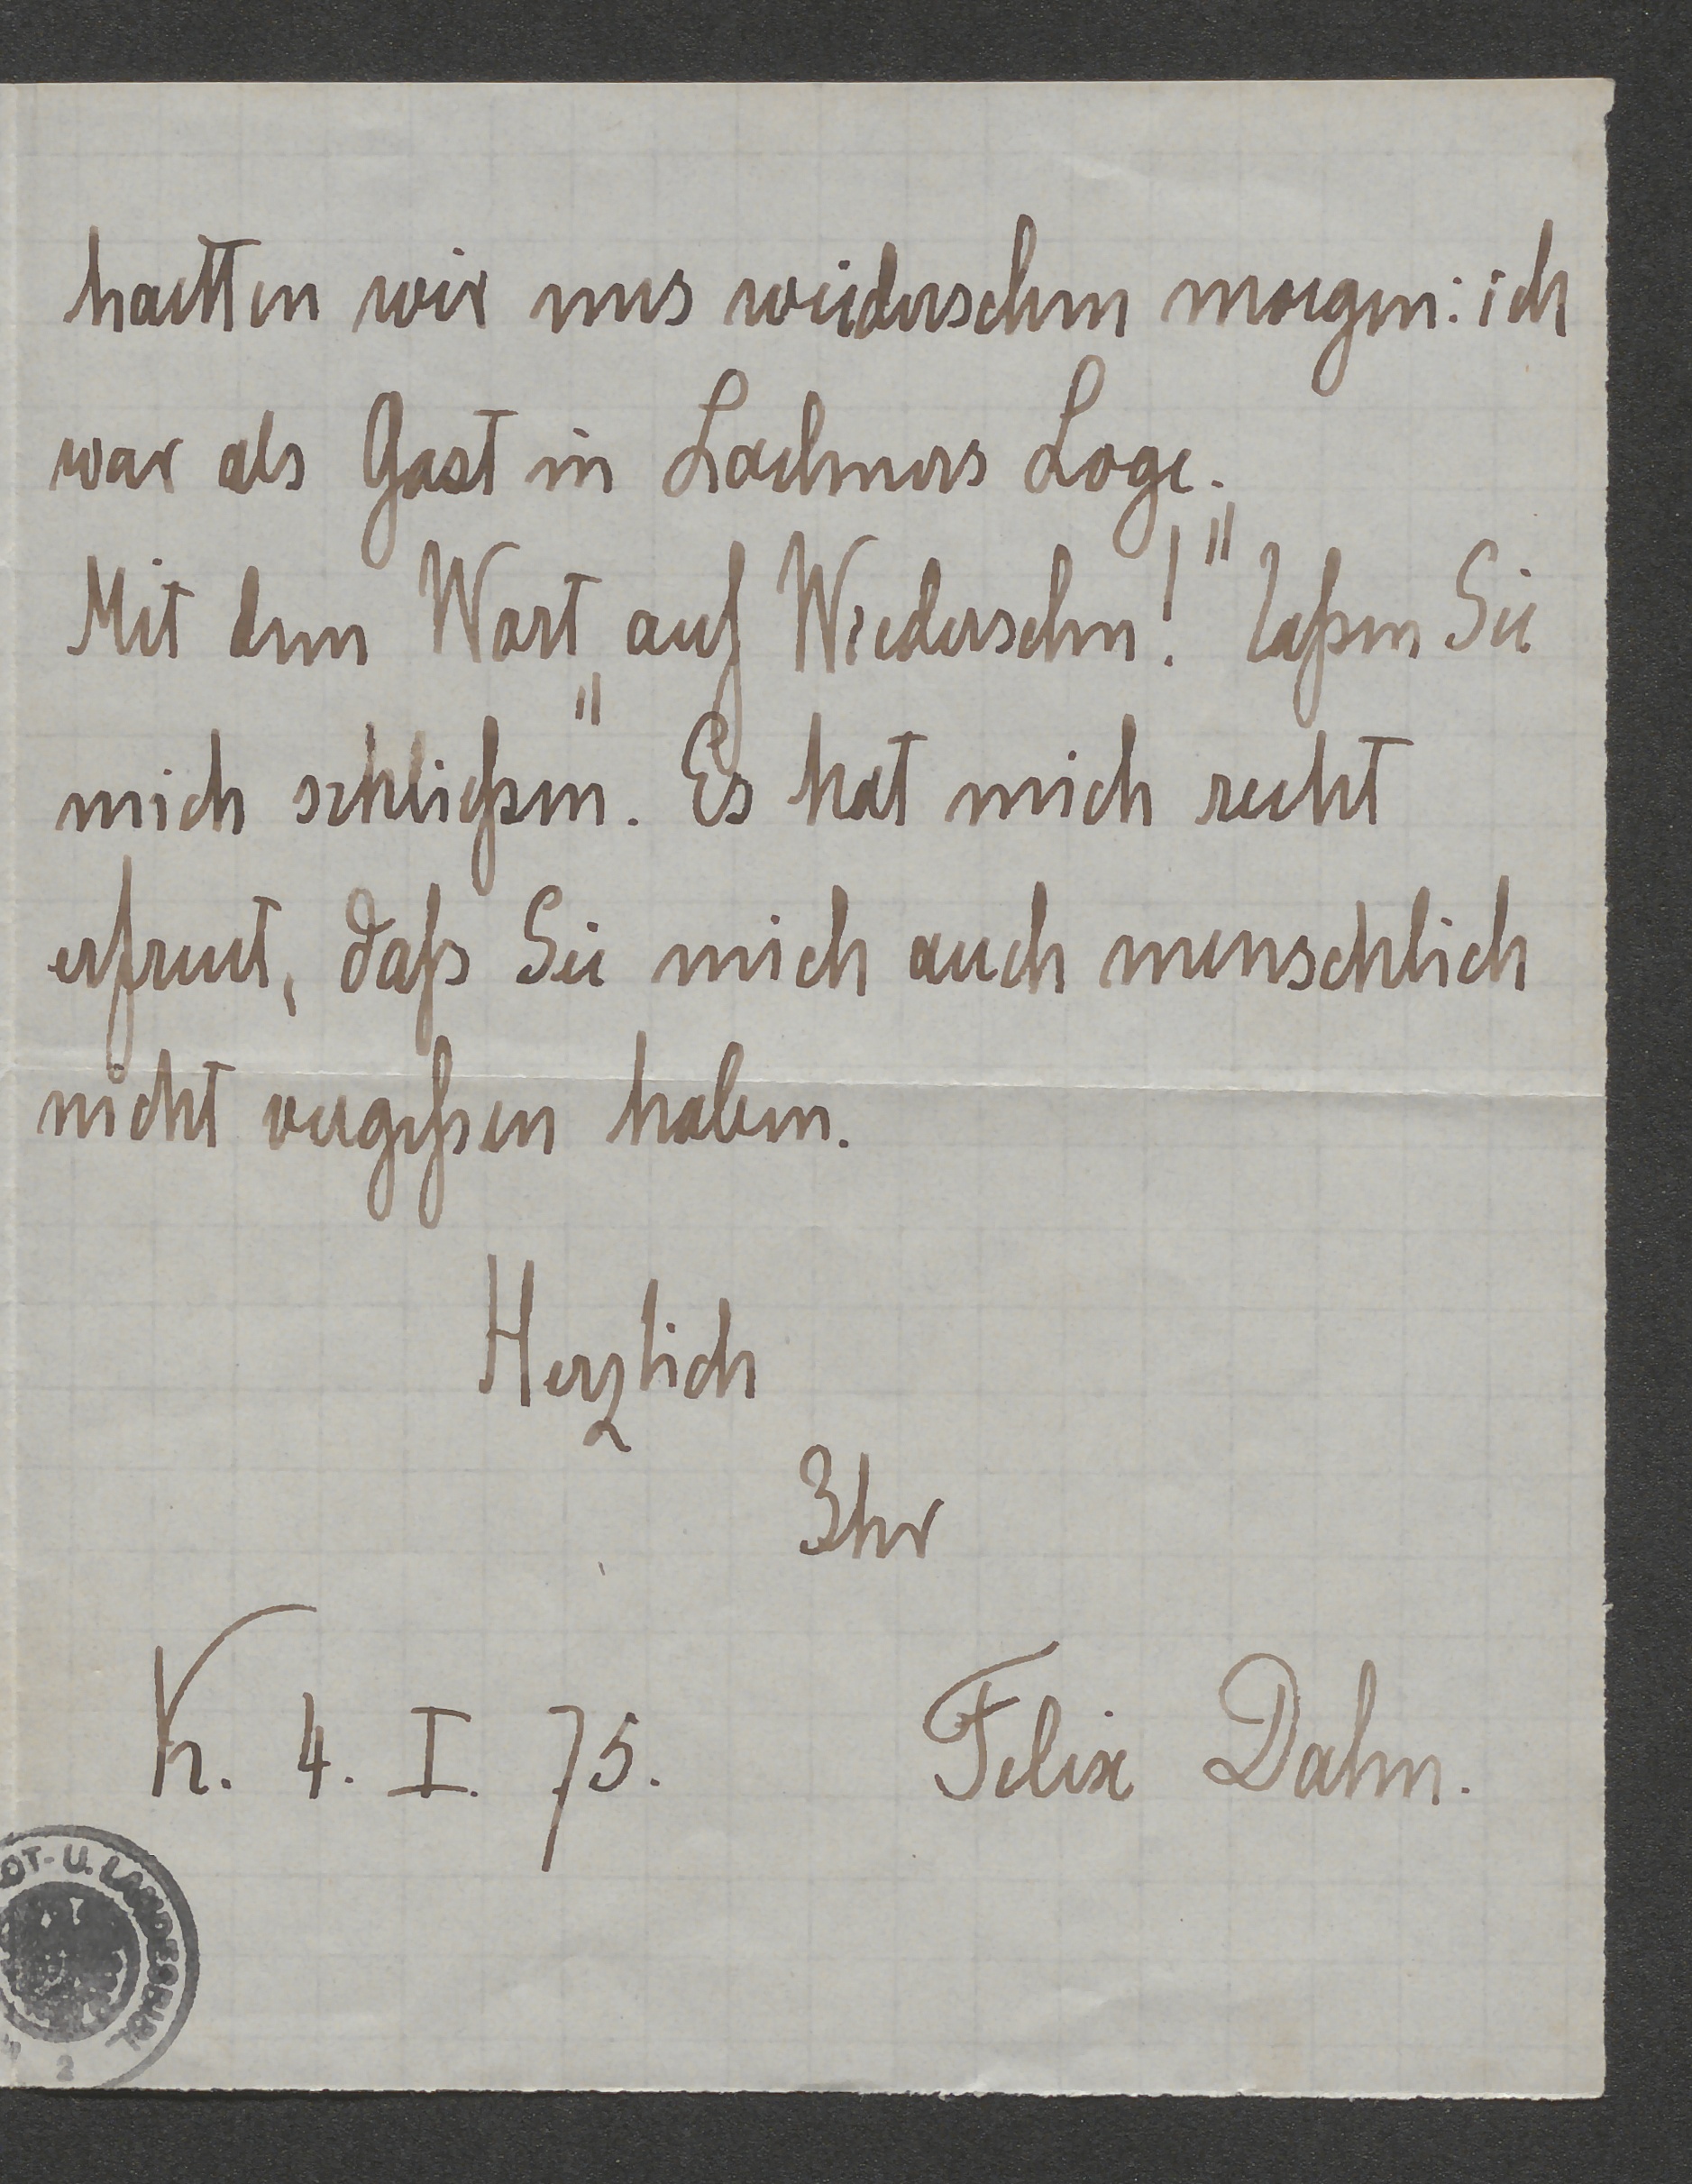 haetten wir uns wiedersehen moegen: ich
war als Gast in Lachners Loge.
Mit dem Wort „auf Wiedersehn!“ laßen Sie
mich schließen. Es hat mich recht
erfreut, daß Sie mich auch menschlich
nicht vergeßen haben.
Herzlich
Ihr
K. 4. I. 75. Felix Dahn.
DT- U. LANDESBIBL
2